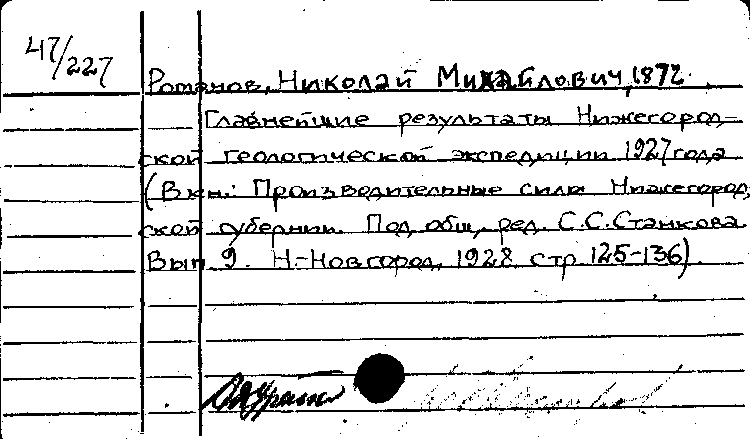 47/227
Романов, Николай Михайлович, 1872
Главнейшие результаты Нижегород-
ской геологической экспедиции 1927 года
(В кн.: Производительные силы Нижегород
ской губернии. Под общ. ред. С.С.Станкова
Вып 9. Н-Новгород, 1928. стр 125-136).